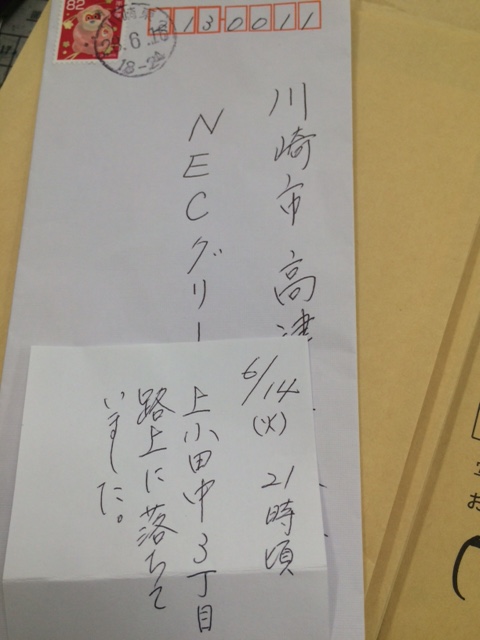 82
213-0011
川崎市 高津
NECグリー
6/14 (火) 21時頃
上小田中3丁目
路上に落ちて
いました。
お